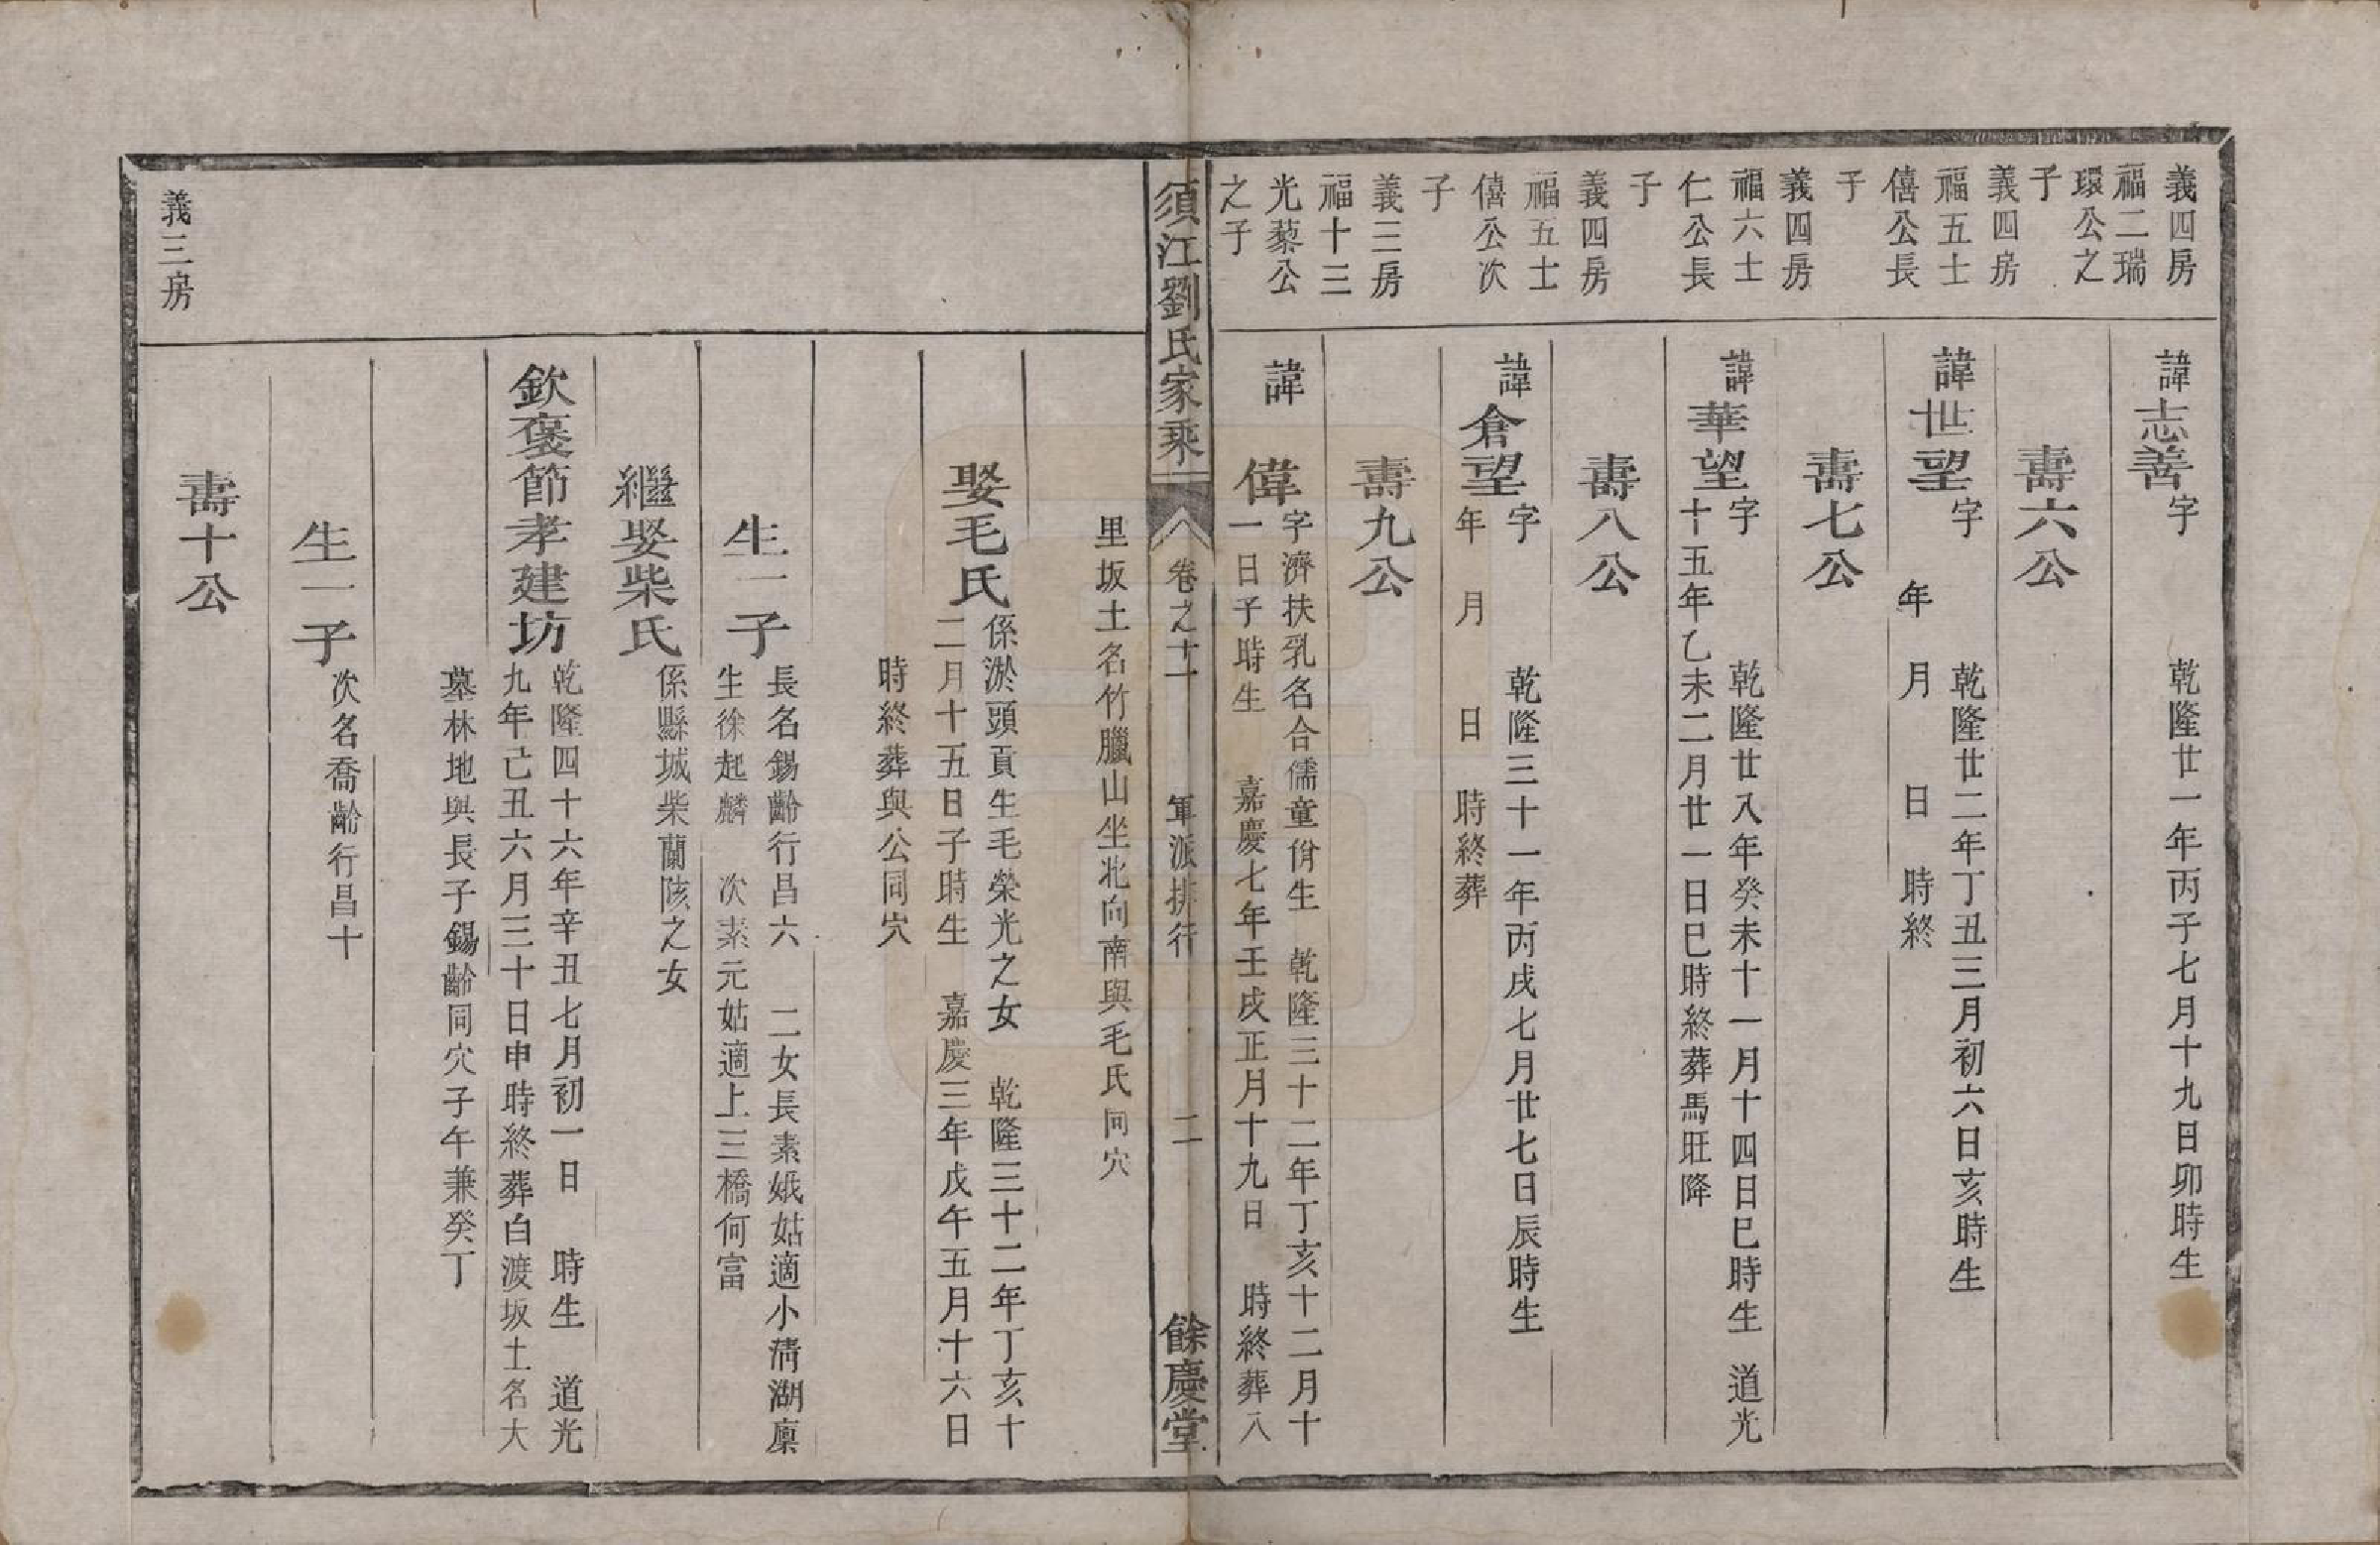 義四房
福二瑞
環公之
子
義四房
福五士
僖公長
子
義四房
福六士
仁公長
子
義四房
福五士
僖公次
子
義三房
福十三
光藜公
之子
諱志善字
乾隆廿一年丙子七月十九日卯時生
壽六公
諱世望字
乾隆廿二年丁丑三月初六日亥時生
年 月 日 時終
壽七公
諱華望字
乾隆廿八年癸未十一月十四日巳時生 道光
十五年乙未二月廿一日巳時終葬馬旺降
壽八公
諱倉望字
乾隆三十一年丙戌七月廿七日辰時生
年 月 日 時終葬
壽九公
諱 偉
字濟扶乳名合儒童佾生 乾隆三十二年丁亥十二月十
一日子時生 嘉慶七年壬戌正月十九日 時終葬八
須江劉氏家乘
卷之十一 軍派排行 二 餘慶堂
里坂土名竹臘山坐北向南與毛氏同穴
娶毛氏
係淤頭貢生毛榮光之女 乾隆三十二年丁亥十
二月十五日子時生 嘉慶三年戊午五月十六日
時終葬與公同穴
生一子
長名錫齡行昌六 二女長素娥姑適小清湖廩
生徐起麟 次素元姑適上三橋何富
繼娶柴氏
係縣城柴蘭陔之女
欽褒節孝建坊
乾隆四十六年辛丑七月初一日 時生 道光
九年己丑六月三十日申時終葬白渡坂土名大
墓林地與長子錫齡同穴子午兼癸丁
生一子
次名喬齡行昌十
義三房
壽十公